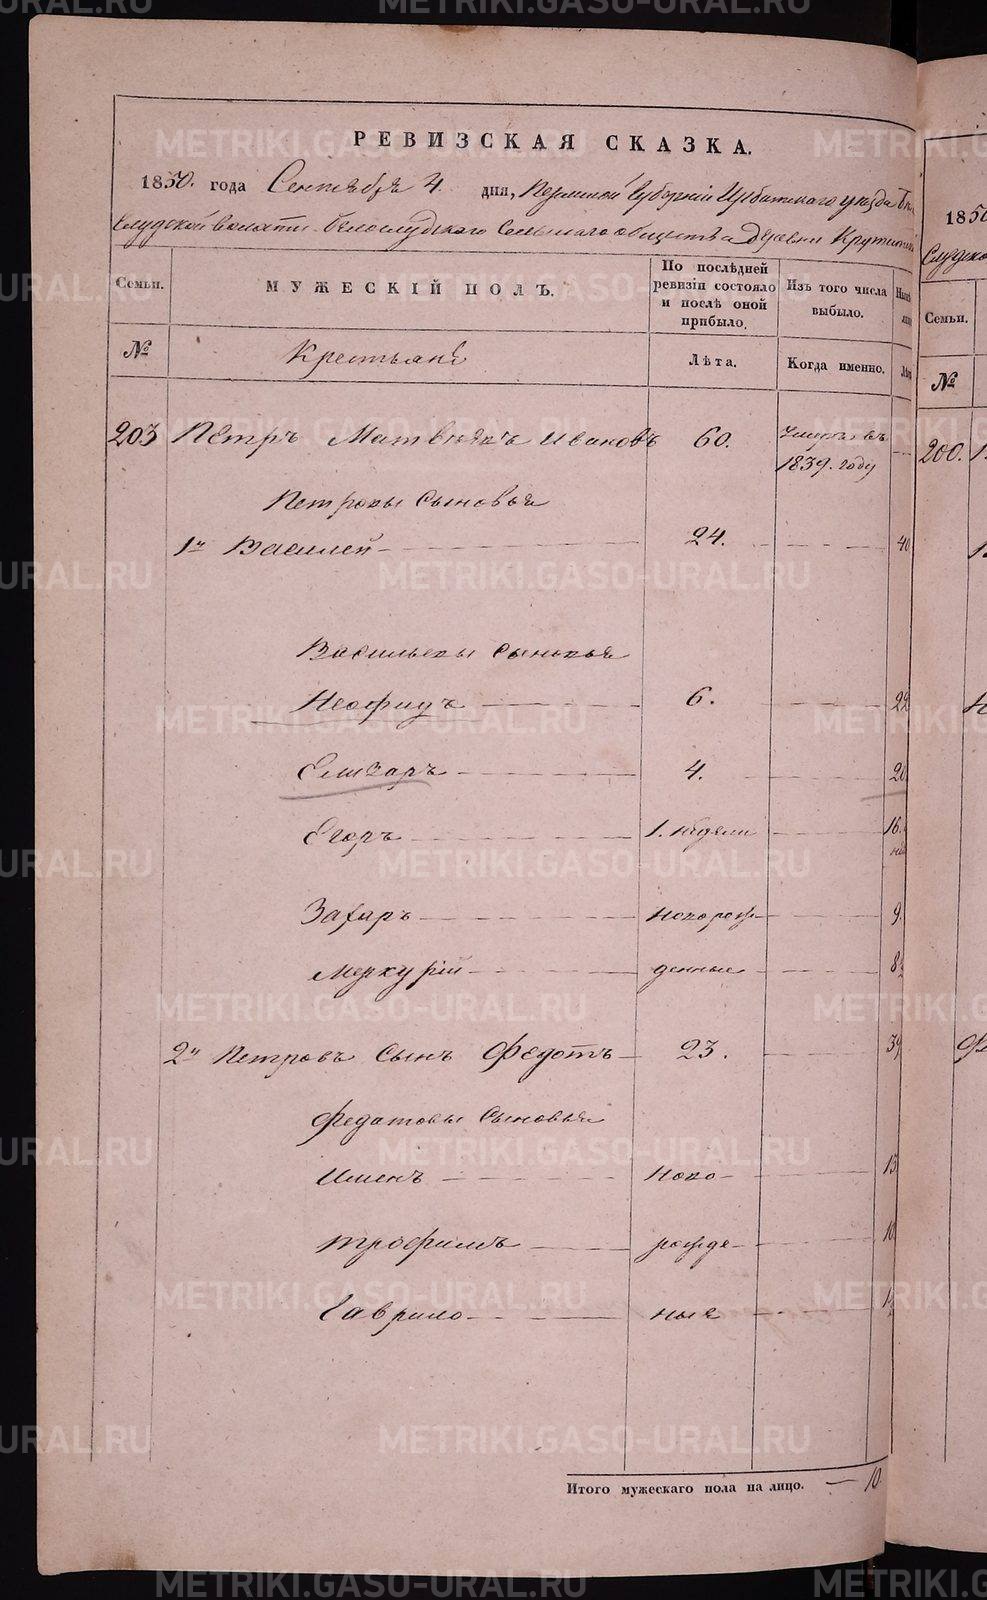 РЕВИЗСКАЯ СКАЗКА.
1850. года Сентября 4 дня, Пермской Губерніи Ирбитскаго уезда Бел
Слудской волости Белослудскаго Сельскаго общества деревни Крутихи
Семьи. МУЖЕСКІЙ ПОЛЪ. По послѣдней ревизіи состояло и послѣ оной прибыло. Изъ того числа выбыло.
№ Крестьяне Лѣта. Когда именно.
203 Петръ Матвеевъ Ивановъ 60. Умеръ въ 1839. году
Петровы Сыновья
1й Василей 24. 40
Васильевы сыновья
Неофидъ 6. 22
Елизаръ 4. 20
Егоръ 1. недели 16.
Захаръ новорож- 9.
Меркурій денные 8½
2й Петровъ Сынъ Федотъ 23. 39
Федотовы Сыновья
Именъ ново- 13
Трофимъ рожде- 10
Гаврило ныя
Итого мужескаго пола на лицо. — 10
1850
Слудско
Семьи.
№
200.
METRIKI.GASO-URAL.RU